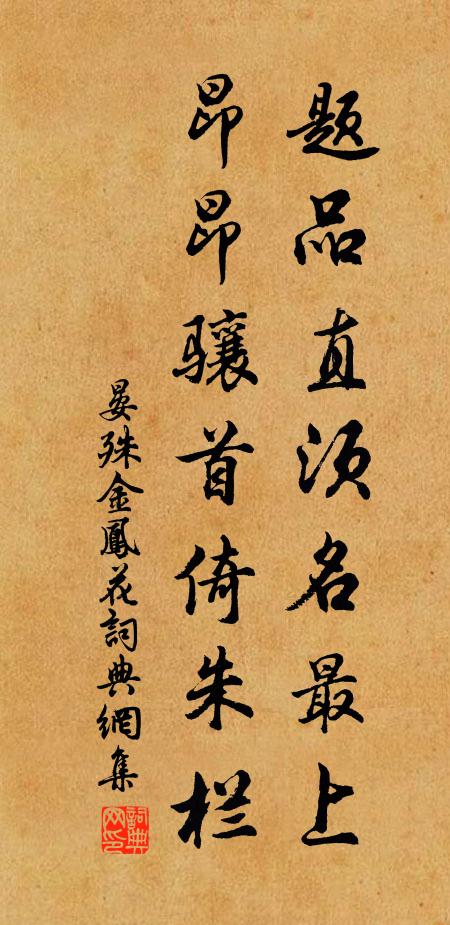 题品直须名最上
昂昂骧首倚朱栏
晏殊金鳳花詞典網集
詞典网印